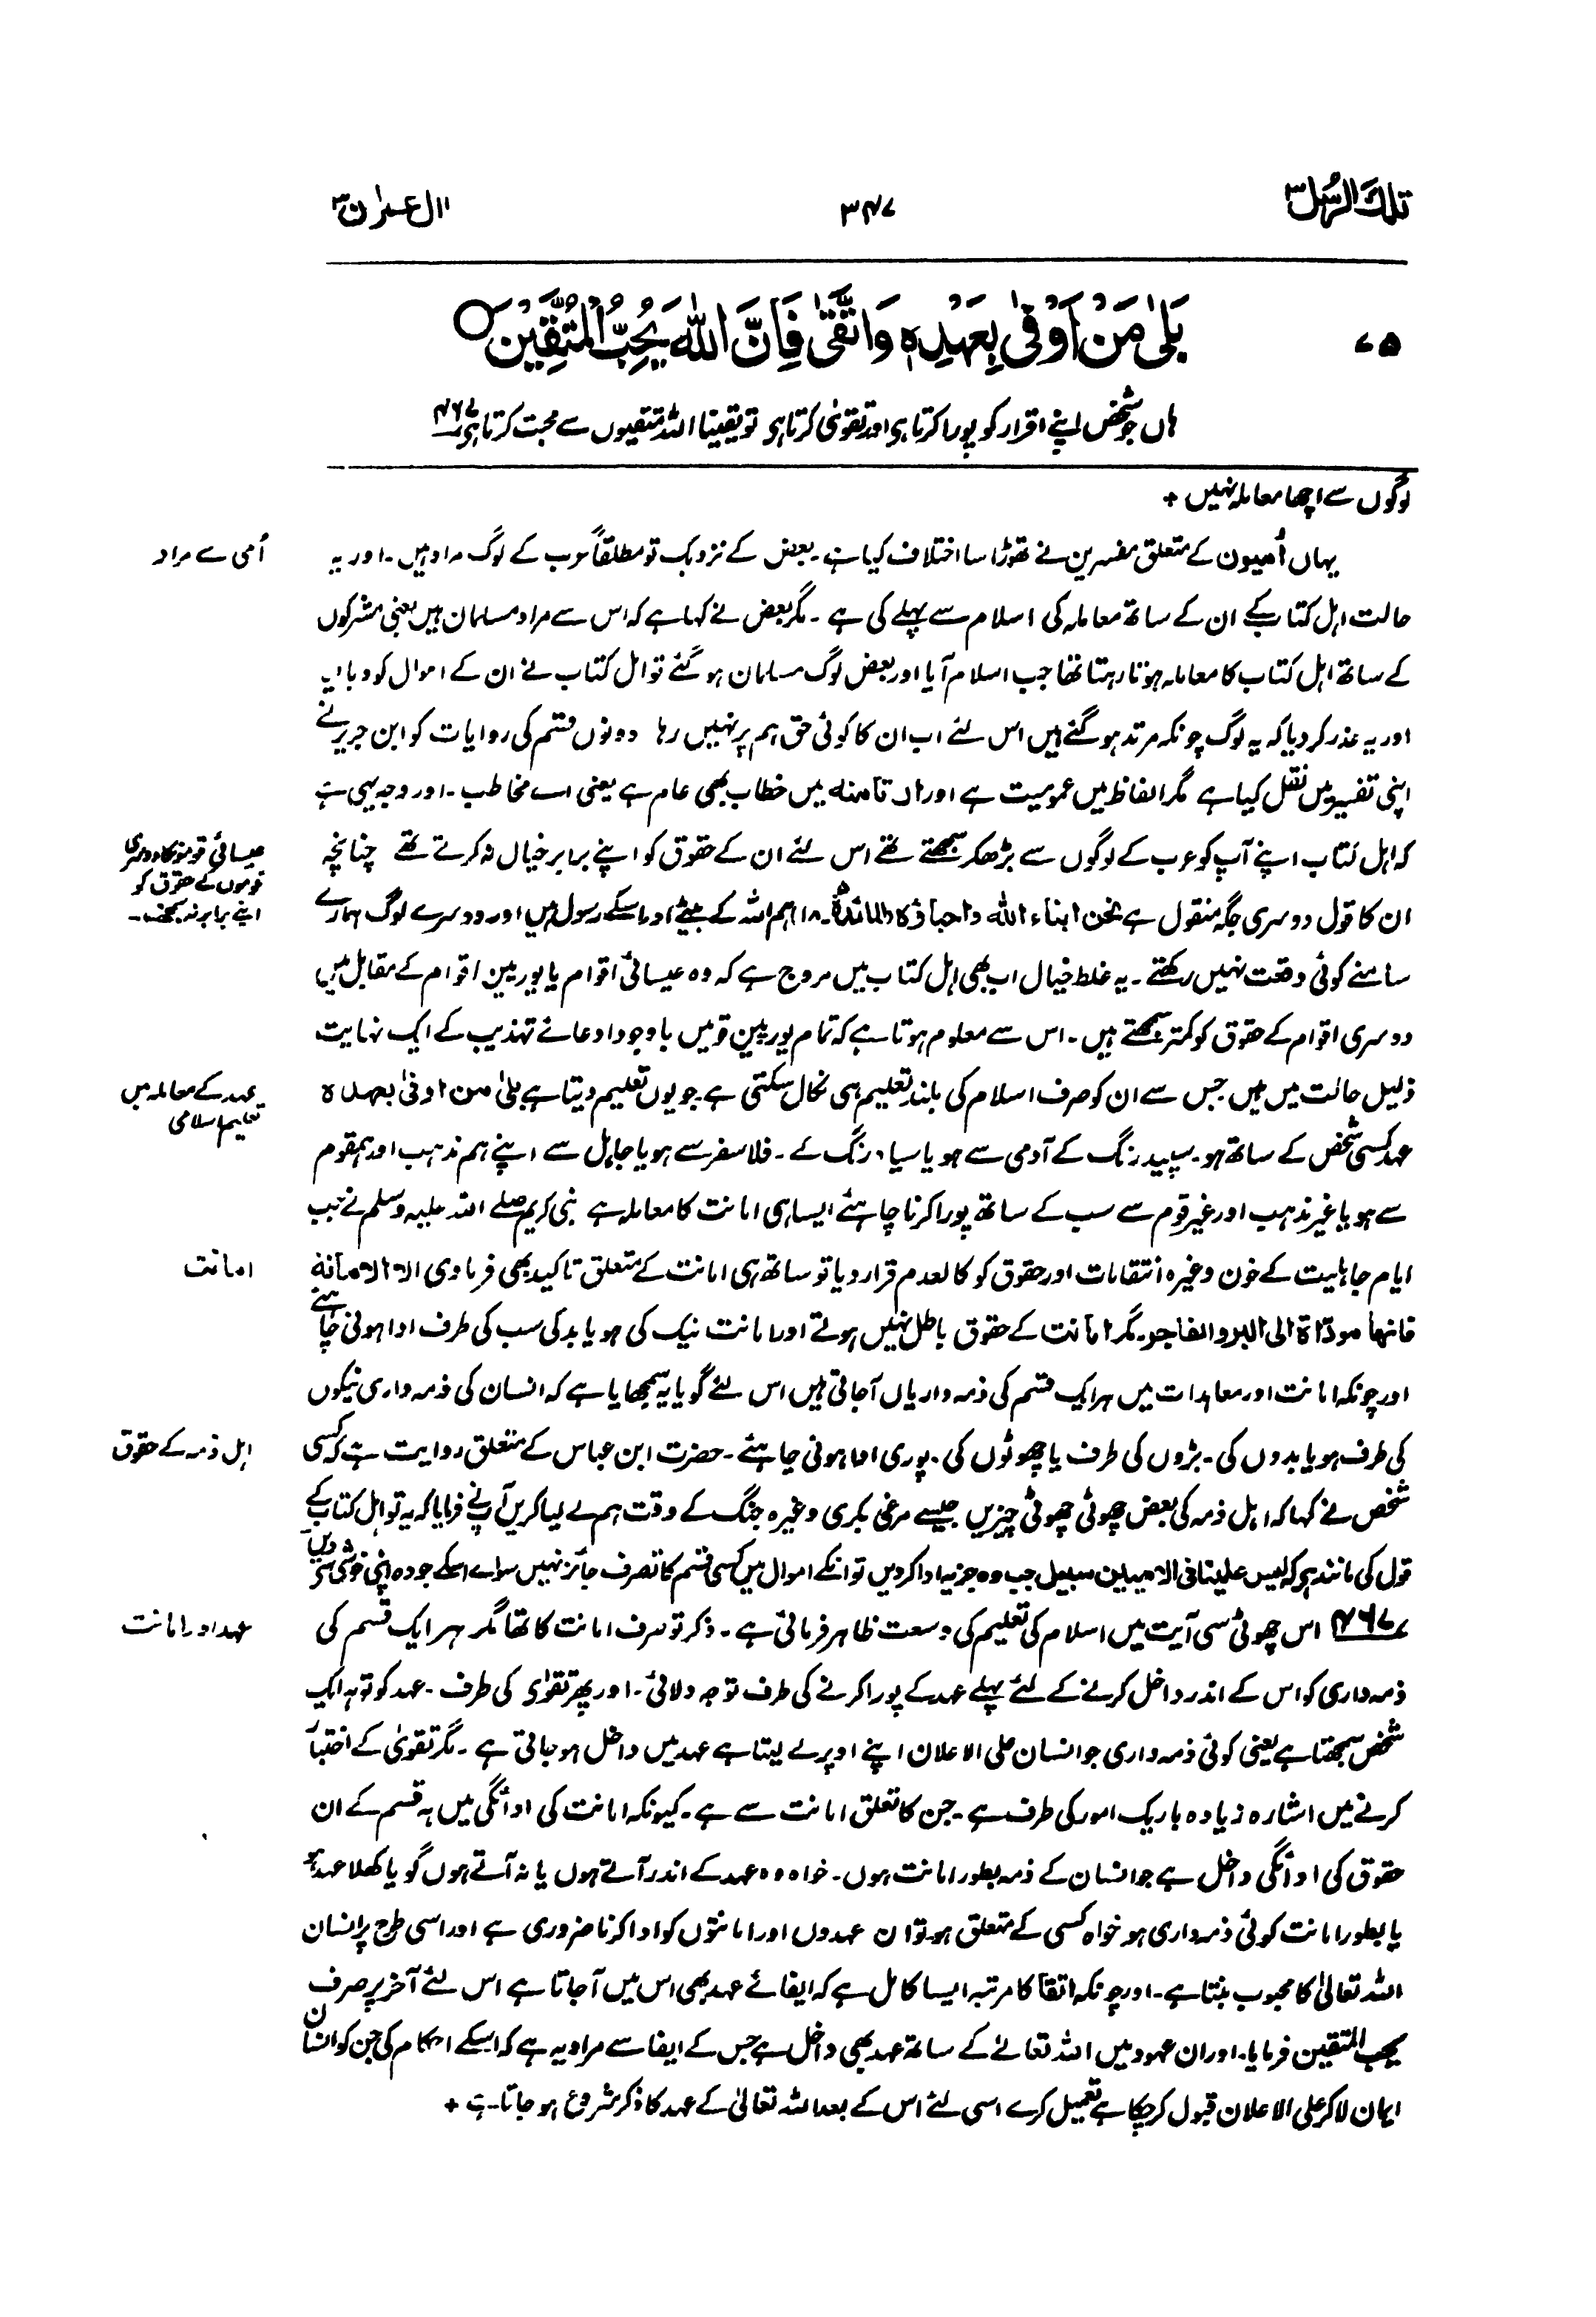 تلك الرسل ۳
۳۴۷
اٰل عمرٰن ۳
۷۵
بَلٰى مَنْ اَوْفٰى بِعَهْدِهٖ وَاتَّقٰى فَاِنَّ اللّٰهَ يُحِبُّ الْمُتَّقِيْنَ
ہاں جو شخص اپنے اقرار کو پورا کرتا ہو اور تقویٰ کرتا ہو تو یقیناً اللہ متقیوں سے محبت کرتا ہے ۴۶۷
لوگوں سے اچھا معاملہ نہیں +
اُمی سے مراد
یہاں اُمیون کے متعلق مفسرین نے تھوڑا سا اختلاف کیا ہے۔ بعض کے نزدیک تو مطلقاً عرب کے لوگ مراد ہیں۔ اور یہ
حالت اہل کتاب کے ان کے ساتھ معاملہ کی اسلام سے پہلے کی ہے۔ مگر بعض نے کہا ہے کہ اس سے مراد مسلمان ہیں یعنی مشرکوں
کے ساتھ اہل کتاب کا معاملہ ہوتا رہتا تھا جب اسلام آیا اور بعض لوگ مسلمان ہو گئے تو اہل کتاب نے ان کے اموال کو دبا لیا
اور یہ عذر کر دیا کہ یہ لوگ چونکہ مرتد ہو گئے ہیں اس لئے اب ان کا کوئی حق ہم پر نہیں رہا دونوں قسم کی روایات کو ابن جریر نے
اپنی تفسیر میں نقل کیا ہے مگر الفاظ میں عمومیت ہے اور ان تامنه میں خطاب بھی عام ہے یعنی اے مخاطب۔ اور وجہ یہی ہے
عیسائی قوموں کا دوسری
قوموں کے حقوق کو
اپنے برابر نہ سمجھنا۔
کہ اہل کتاب اپنے آپ کو عرب کے لوگوں سے بڑھکر سمجھتے تھے اس لئے ان کے حقوق کو اپنے برابر خیال نہ کرتے تھے چنانچہ
ان کا قول دوسری جگہ منقول ہے نحن ابناء الله واحباؤه (المائدة۔ ۱۸) ہم اللہ کے بیٹے اور اسکے رسول ہیں اور دوسرے لوگ ہمارے
سامنے کوئی وقعت نہیں رکھتے۔ یہ غلط خیال اب بھی اہل کتاب میں مروج ہے کہ وہ عیسائی اقوام یا یورپین اقوام کے مقابل میں
دوسری اقوام کے حقوق کو کمتر سمجھتے ہیں۔ اس سے معلوم ہوتا ہے کہ تمام یورپین قومیں باوجود ادعائے تہذیب کے ایک نہایت
عہد کے معاملہ میں
تعلیم اسلامی
ذلیل حالت میں ہیں جس سے ان کو صرف اسلام کی بلند تعلیم ہی نکال سکتی ہے جو یوں تعلیم دیتا ہے بلیٰ من اوفیٰ بعهده
عہد کسی شخص کے ساتھ ہو۔ سپید رنگ کے آدمی سے ہو یا سیاہ رنگ کے۔ فلاسفر سے ہو یا جاہل سے اپنے ہم مذہب اور ہمقوم
سے ہو یا غیر مذہب اور غیر قوم سے سب کے ساتھ پورا کرنا چاہئے ایسا ہی امانت کا معاملہ ہے نبی کریم صلے اللہ علیہ وسلم نے جب
امانت
ایام جاہلیت کے خون وغیرہ انتقامات اور حقوق کو کالعدم قرار دیا تو ساتھ ہی امانت کے متعلق تاکید بھی فرما دی الا الامانة
فانها مودّاة الى البر والفاجر۔ مگر امانت کے حقوق باطل نہیں ہوتے اور امانت نیک کی ہو یا بد کی سب کی طرف ادا ہونی چاہئے
اور چونکہ امانت اور معاہدات میں ہر ایک قسم کی ذمہ داریاں آجاتی ہیں اس لئے گویا یہ سمجھایا ہے کہ انسان کی ذمہ داری نیکوں
اہل ذمہ کے حقوق
کی طرف ہو یا بدوں کی۔ بڑوں کی طرف یا چھوٹوں کی۔ پوری ادا ہونی چاہئے۔ حضرت ابن عباس کے متعلق روایت ہے کہ کسی
شخص نے کہا کہ اہل ذمہ کی بعض چھوٹی چھوٹی چیزیں جیسے مرغی بکری وغیرہ جنگ کے وقت ہم لے لیا کریں آپ نے فرمایا کہ یہ تو اہل کتاب کے
قول کی مانند ہے کہ لیس علینا فی الامیین سبیل جب وہ جزیہ ادا کر دیں تو انکے اموال میں کسی قسم کا تصرف جائز نہیں سوائے اسکے جو وہ اپنی خوشی سے دیں
عہد اور امانت
۴۶۷ اس چھوٹی سی آیت میں اسلام کی تعلیم کی وسعت ظاہر فرمائی ہے۔ ذکر تو صرف امانت کا تھا مگر ہر ایک قسم کی
ذمہ داری کو اس کے اندر داخل کرنے کے لئے پہلے عہد کے پورا کرنے کی طرف توجہ دلائی۔ اور پھر تقوٰی کی طرف۔ عہد کو تو ہر ایک
شخص سمجھتا ہے یعنی کوئی ذمہ داری جو انسان علی الاعلان اپنے اوپر لے لیتا ہے عہد میں داخل ہو جاتی ہے۔ مگر تقویٰ کے اختیار
کرنے میں اشارہ زیادہ باریک امور کی طرف ہے۔ جن کا تعلق امانت سے ہے۔ کیونکہ امانت کی ادائگی میں ہر قسم کے ان
حقوق کی ادائگی داخل ہے جو انسان کے ذمہ بطور امانت ہوں۔ خواہ وہ عہد کے اندر آتے ہوں یا نہ آتے ہوں گویا کھلا عہد ہو
یا بطور امانت کوئی ذمہ داری ہو خواہ کسی کے متعلق ہو تو ان عہدوں اور امانتوں کو ادا کرنا ضروری ہے اور اسی طرح پر انسان
اللہ تعالیٰ کا محبوب بنتا ہے۔ اور چونکہ اتقا کا مرتبہ ایسا کامل ہے کہ ایفائے عہد بھی اس میں آجاتا ہے اس لئے آخر پر صرف
یحب المتقین فرمایا۔ اور ان عہود میں اللہ تعالےٰ کے ساتھ عہد بھی داخل ہے جس کے ایفا سے مراد یہ ہے کہ اسکے احکام کی جن کو انسان
ایمان لا کر علی الاعلان قبول کر چکا ہے تعمیل کرے اسی لئے اس کے بعد اللہ تعالیٰ کے عہد کا ذکر شروع ہو جاتا ہے +